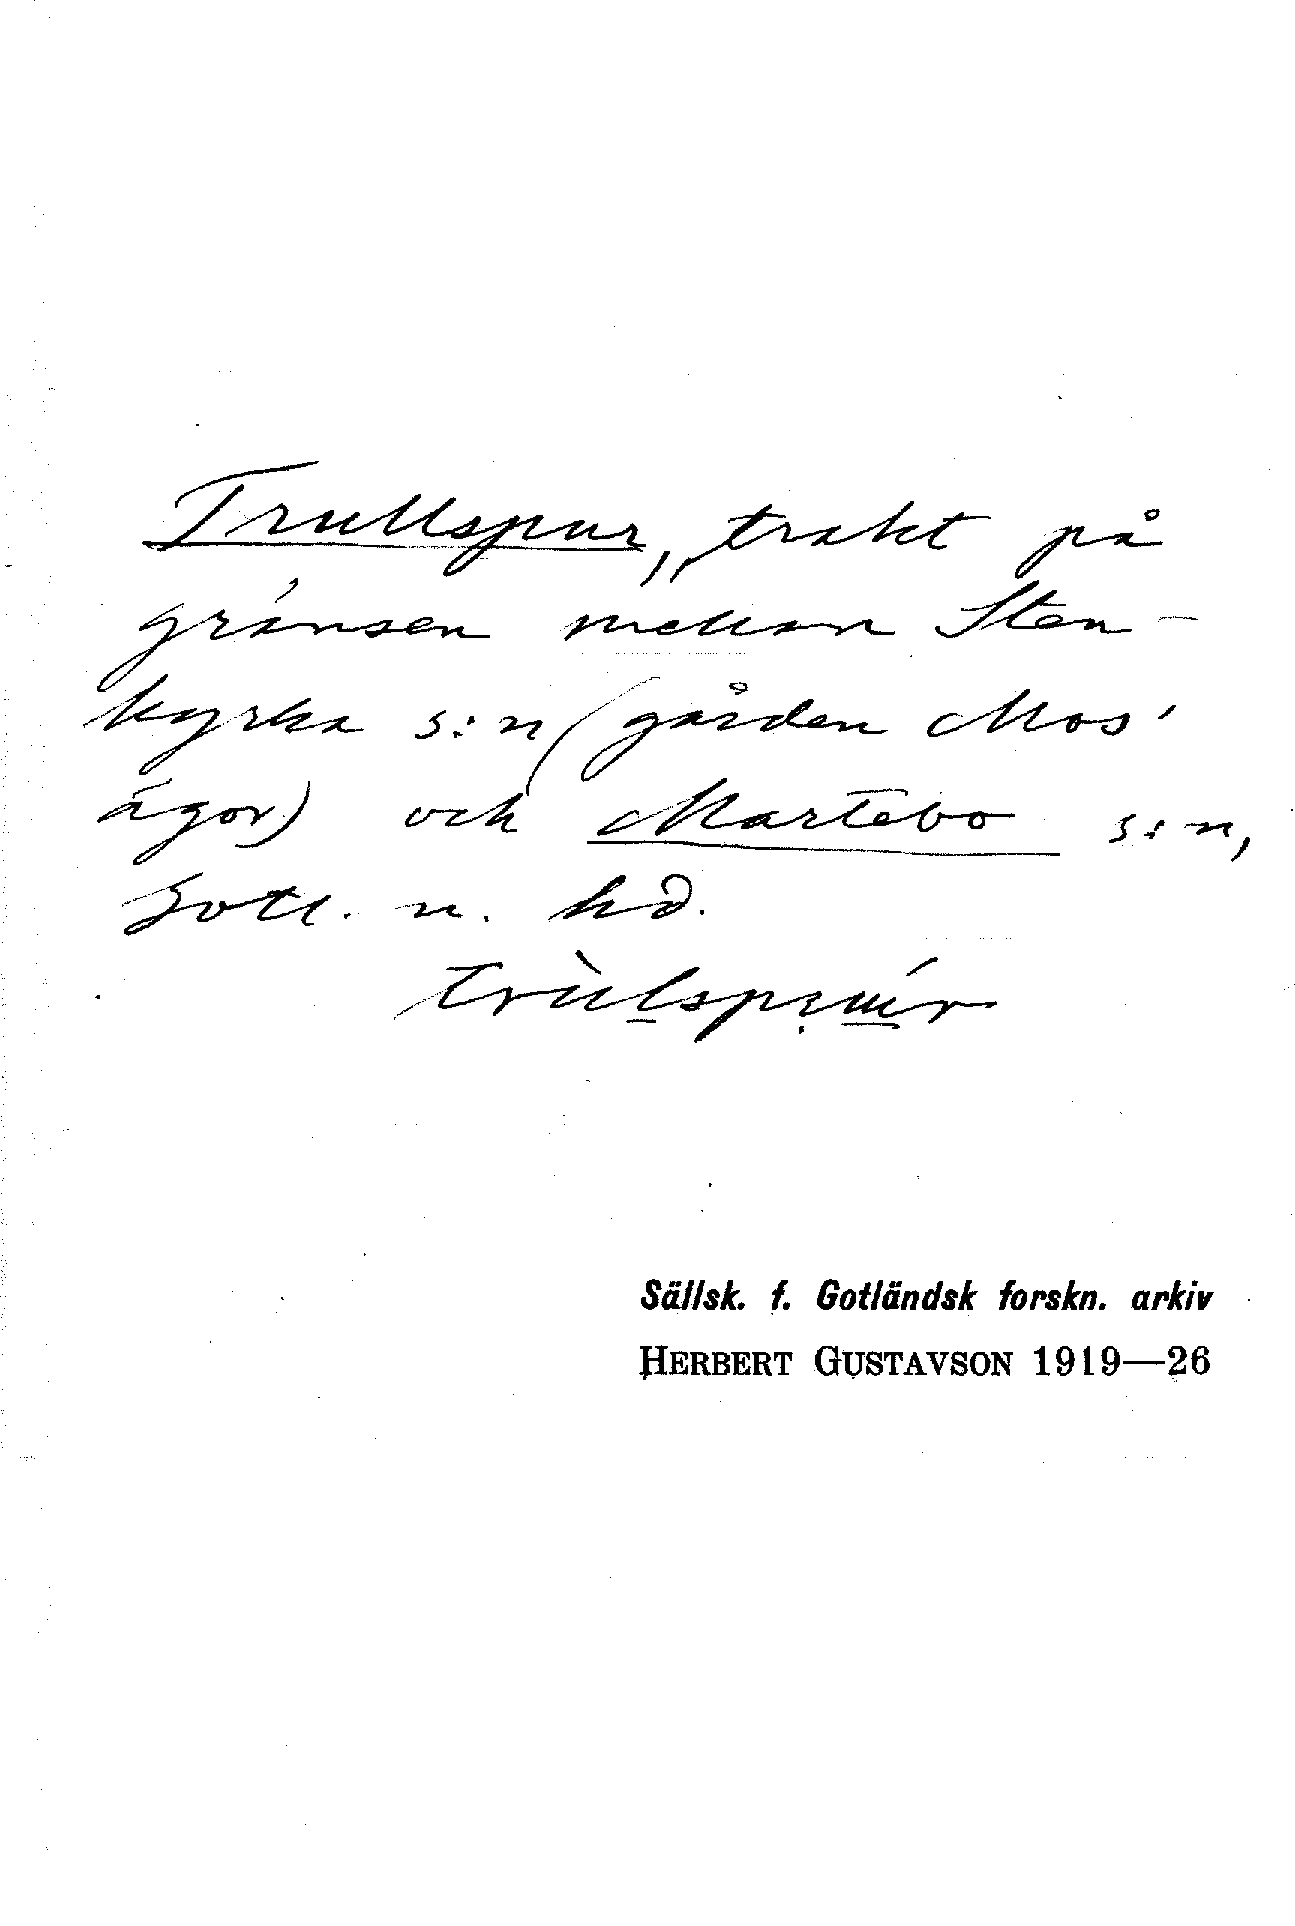 Trullspur, trakt på
gränsen mellan Sten-
kyrka s:n (gården Mos'
ägor) och Martebo s:n,
Gotl. n. hd.
Sällsk. f. Gotländsk forskn. arkiv
HERBERT GUSTAVSON 1919—26